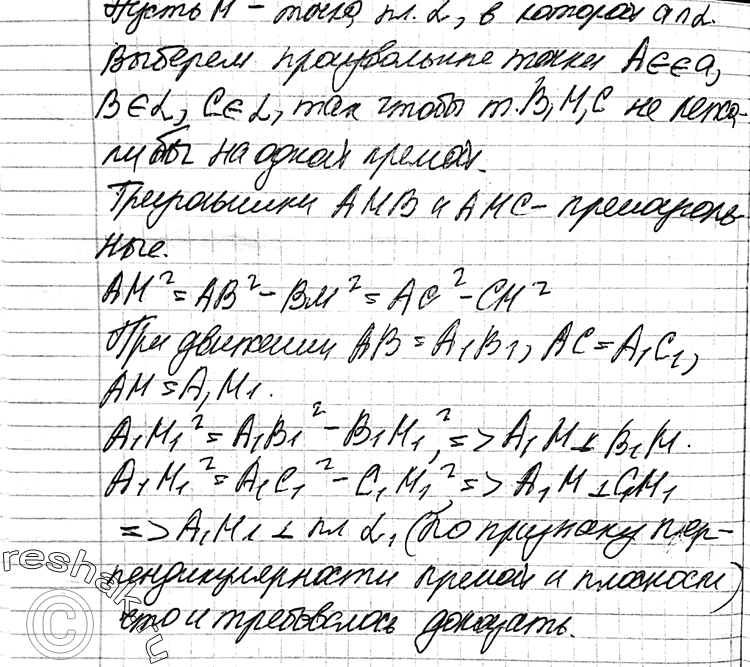 Пусть М – точка пл. α, в которой a∩α.
Выберем произвольные точки A∈∈a,
B∈α, C∈α, так чтобы т. B, M, C не лежа-
ли бы на одной прямой.
Треугольники AMB и AMC – прямоуголь-
ные.
AM² = AB² - BM² = AC² - CM²
При движении AB = A₁B₁, AC = A₁C₁,
AM = A₁M₁.
A₁M₁² = A₁B₁² - B₁M₁², => A₁M ⊥ B₁M.
A₁M₁² = A₁C₁² - C₁M₁² => A₁M ⊥ C₁M₁
=> A₁M₁ ⊥ пл. α₁ (по признаку пер-
пендикулярности прямой и плоскости)
что и требовалось доказать.
reshak.ru
©